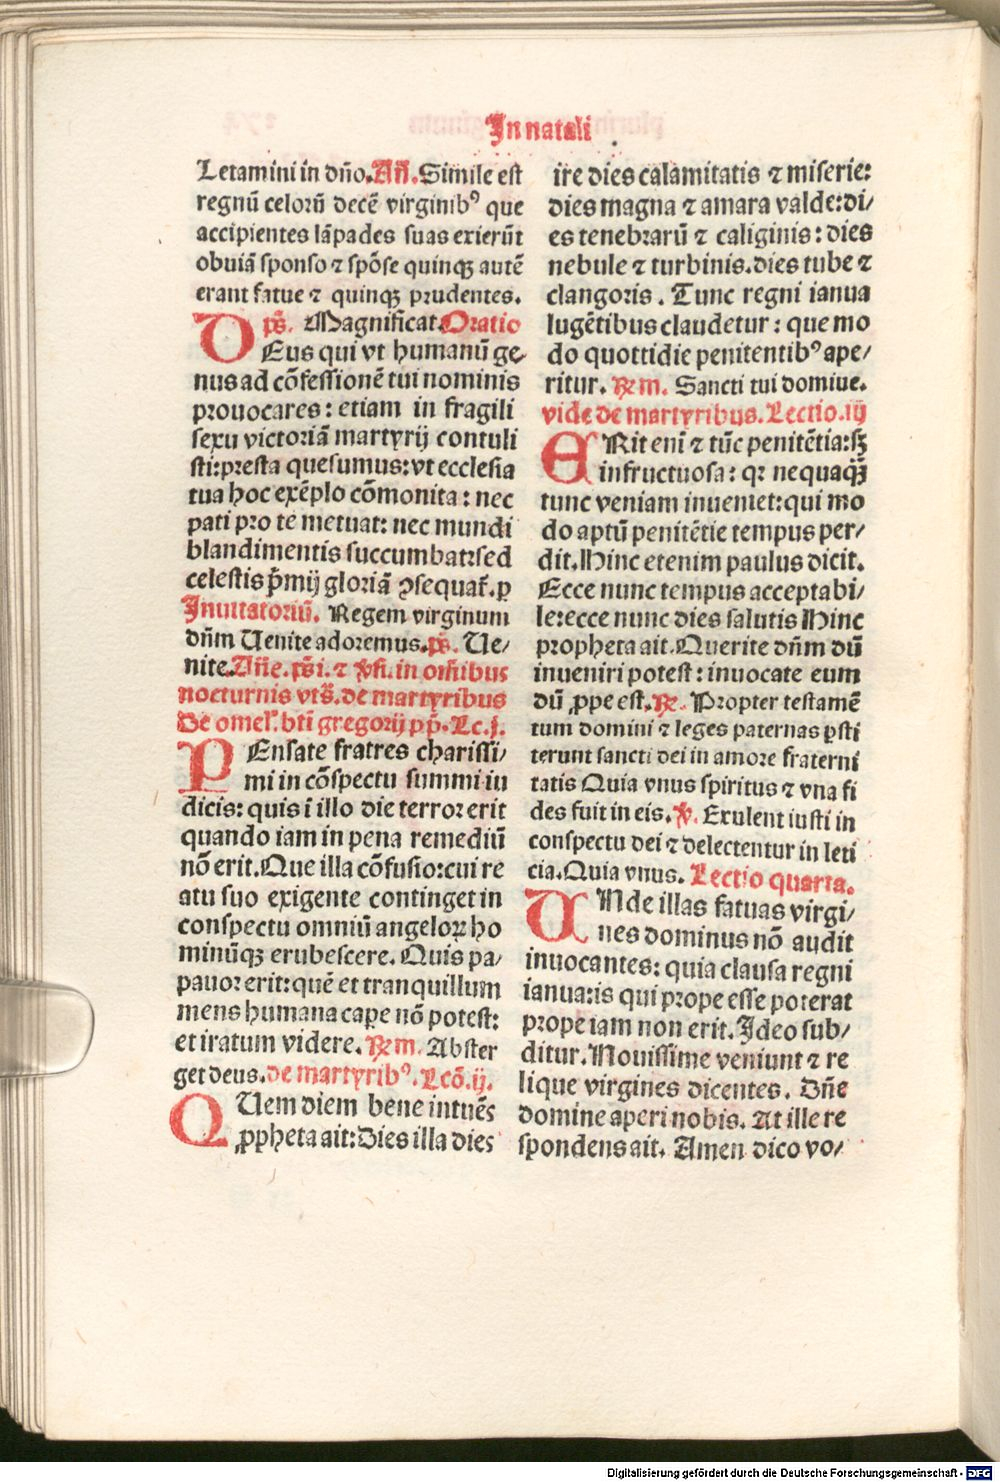 In natali
Letamini in dño. Añ. Simile est
regnũ celorũ decẽ virginibꝰ que
accipientes lãpades suas exierũt
obuiã sponso ⁊ spõse quinqꝫ autẽ
erant fatue ⁊ quinqꝫ prudentes.
ps̃. Magnificat. Oratio
DEus qui vt humanũ ge-
nus ad cõfessionẽ tui nominis
prouocares: etiam in fragili
sexu victoriã martyrij contuli
sti: presta quesumus: vt ecclesia
tua hoc exẽplo cõmonita: nec
pati pro te metuat: nec mundi
blandimentis succumbat: sed
celestis p̃mij gloriã ꝯsequat̃. ꝑ
Inuitatoriũ. Regem virginum
dñm Uenite adoremus. ps̃. Ue/
nite. Añe. ps̃i. ⁊ v̇̃si. in oĩnibus
nocturnis vts̃. de martyribus
De omel'. bti gregorij pp̃. Lc. j.
PEnsate fratres charissi/
mi in cõspectu summi iu
dicis: quis ĩ illo die terror erit
quando iam in pena remediũ
nõ erit. Que illa cõfusio: cui re
atu suo exigente continget in
conspectu omniũ angeloꝝ ho
minũqꝫ erubescere. Quis pa/
pauor erit: quẽ et tranquillum
mens humana capere nõ potest:
et iratum videre. ℞m. Abster
get deus. de martyribꝰ. Lcõ. ij.
QUem diem bene intuẽs
ꝓpheta ait: Dies illa dies
ire dies calamitatis ⁊ miserie:
dies magna ⁊ amara valde: di/
es tenebrarũ ⁊ caliginis: dies
nebule ⁊ turbinis. dies tube ⁊
clangoris. Tunc regni ianua
lugẽtibus claudetur: que mo
do quottidie penitentibꝰ ape/
ritur. ℞m. Sancti tui domine.
vide de martyribus. Lectio. iij
ERit enĩ ⁊ tũc penitẽtia: sꝫ
infructuosa: qꝛ nequaqꝫ̃
tunc veniam inueniet: qui mo
do aptũ penitẽtie tempus per/
dit. Hinc etenim paulus dicit.
Ecce nunc tempus acceptabi/
le: ecce nunc dies salutis Hinc
propheta ait. Querite dñm dũ
inueniri potest: inuocate eum
dũ ꝓpe est. ℞. Propter testamẽ
tum domini ⁊ leges paternas ꝑsti
terunt sancti dei in amore fraterni
tatis Quia vnus spiritus ⁊ vna fi
des fuit in eis. ℣. Exulent iusti in
conspectu dei ⁊ delectentur in leti
cia. Quia vnus. Lectio quarta.
UNde illas fatuas virgi/
nes dominus nõ audit
inuocantes: quia clausa regni
ianua: is qui prope esse poterat
prope iam non erit. Ideo sub/
ditur. Nouissime veniunt ⁊ re
lique virgines dicentes. Dñe
domine aperi nobis. At ille re
spondens ait. Amen dico vo/
Digitalisierung gefördert durch die Deutsche Forschungsgemeinschaft - DFG